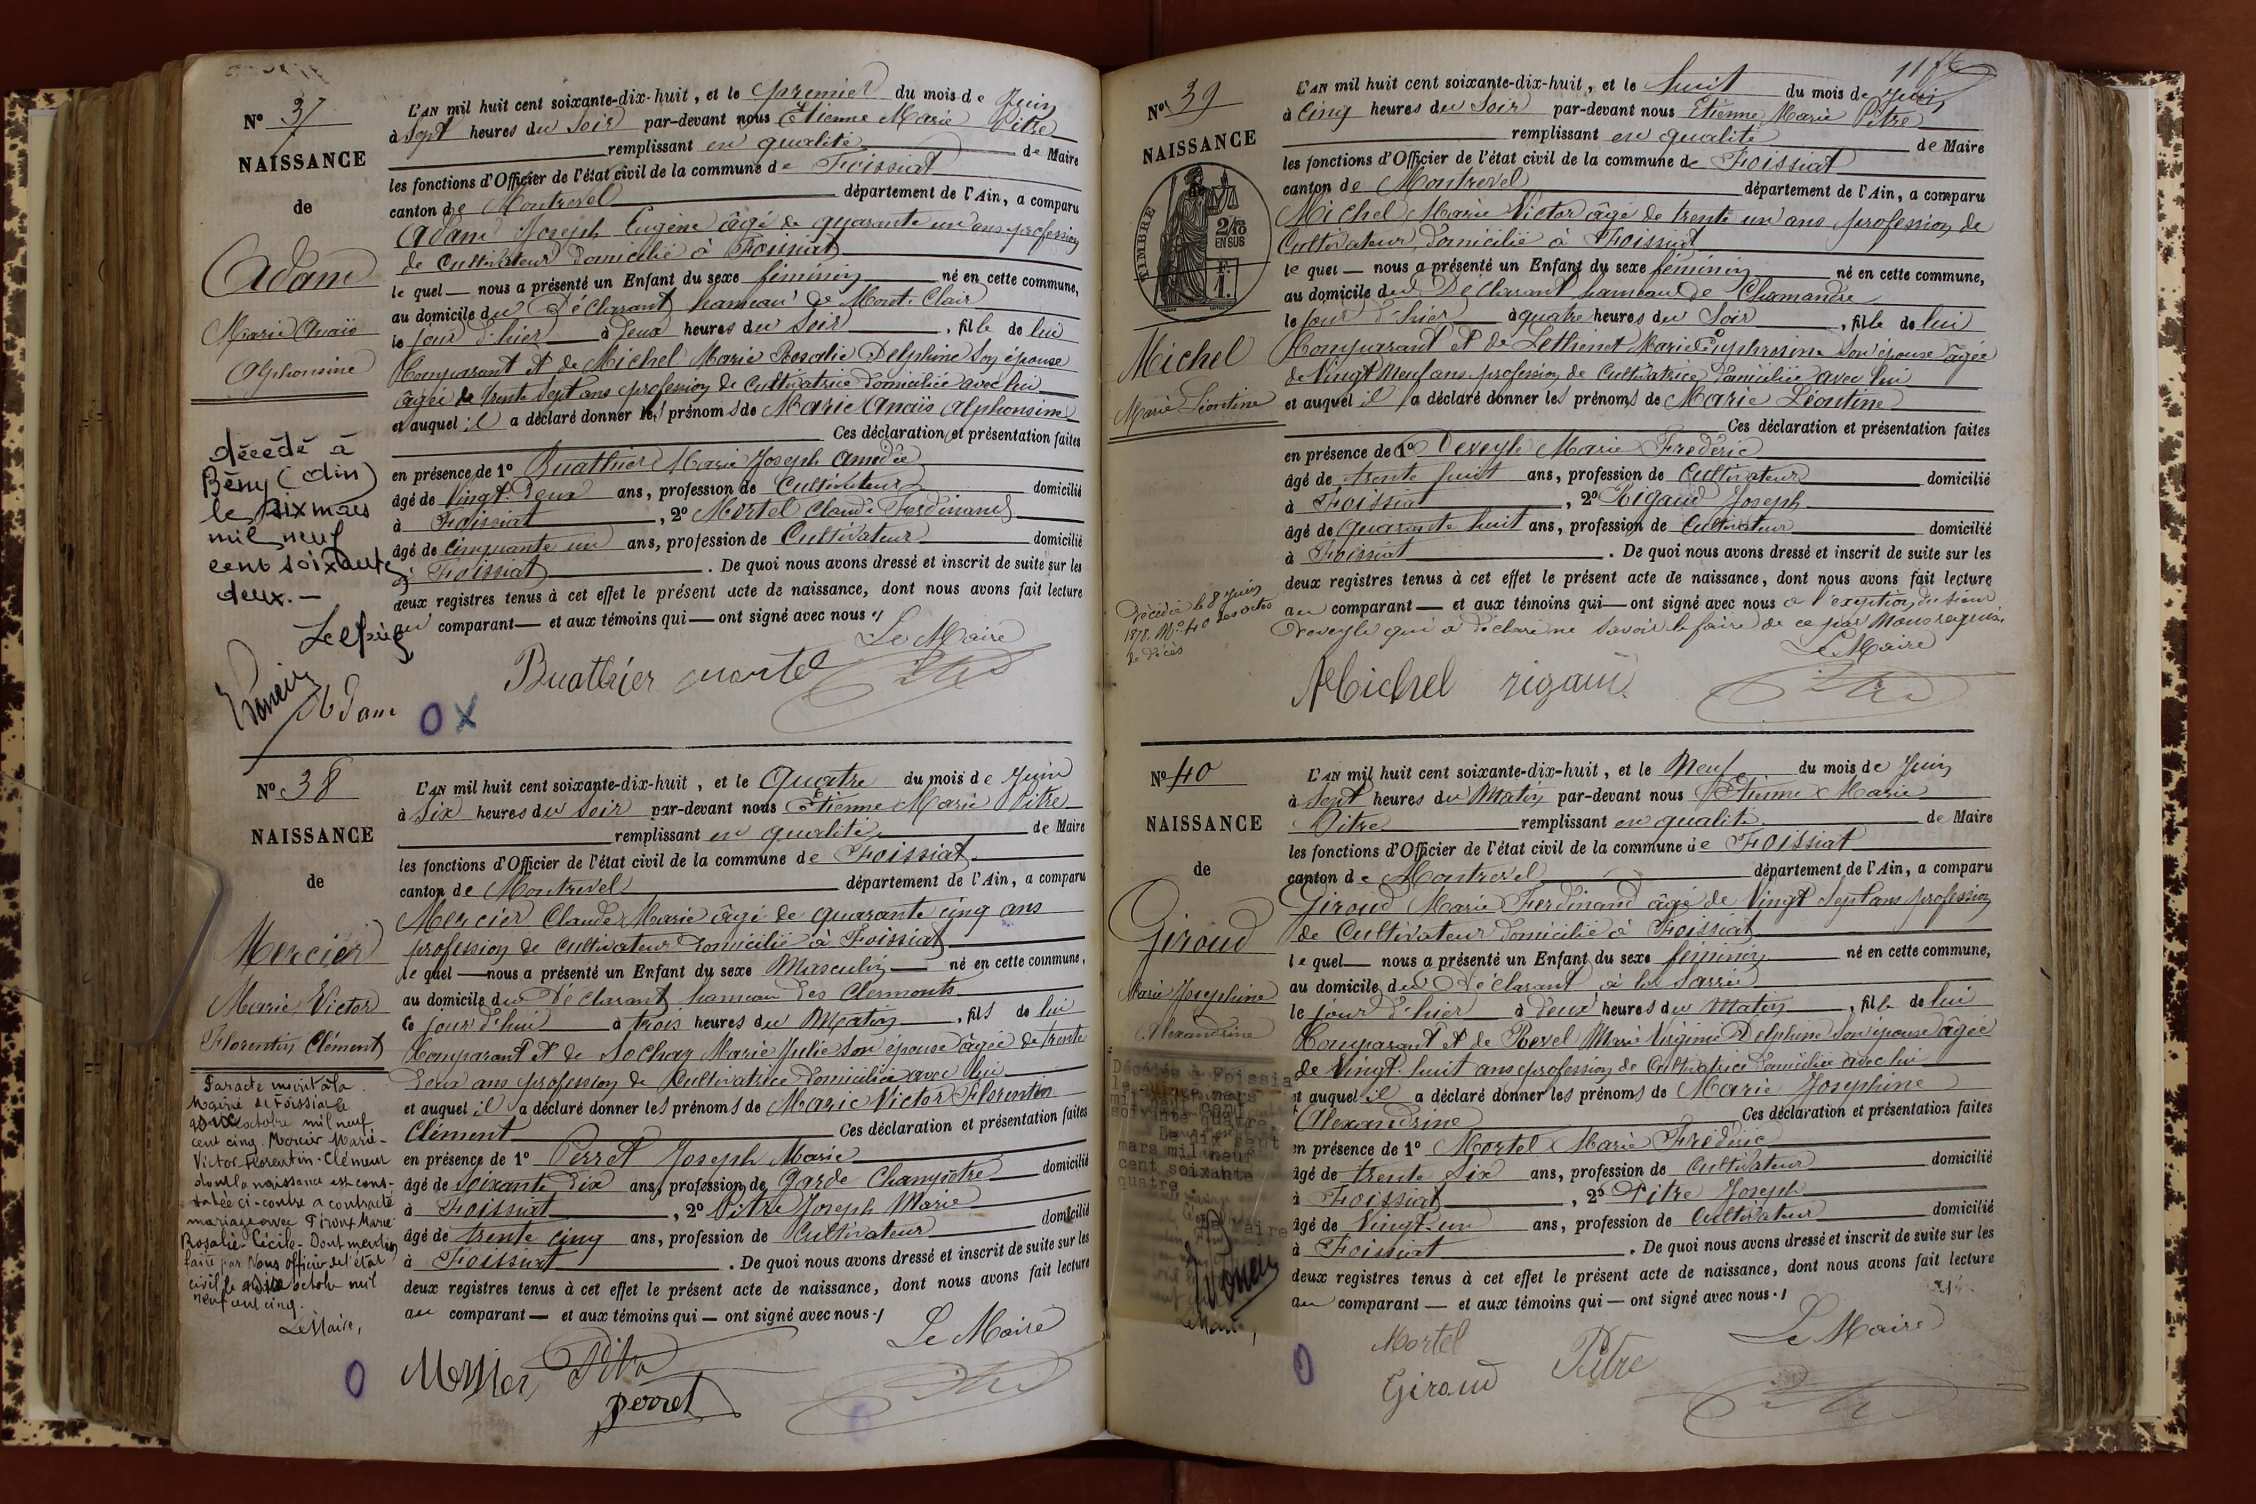 N° 37
NAISSANCE
de
Adam
Marie Anaïs
Alphonsine
décédé à
Bény (Ain)
le six mars
mil neuf
cent soixante
deux. —
L'AN mil huit cent soixante-dix-huit, et le premier du mois de Juin
à Sept heures du Soir par-devant nous Etienne Marie Pitre
remplissant en qualité de Maire
les fonctions d'Officier de l'état civil de la commune de Foissiat
canton de Montrevel département de l'Ain, a comparu
Adam Joseph Eugène âgé de quarante un ans profession
de Cultivateur domicilié à Foissiat
le quel — nous a présenté un Enfant du sexe féminin né en cette commune,
au domicile du Déclarant hameau de Mont-Clair
le jour d'hier à deux heures du Soir, fille de lui
Comparant et de Michel Marie Rosalie Delphine son épouse
âgée de trente sept ans profession de Cultivatrice domiciliée avec lui
et auquel il a déclaré donner les prénoms de Marie Anaïs Alphonsine
Ces déclaration et présentation faites
en présence de 1° Buathier Marie Joseph Amédée
âgé de vingt-deux ans, profession de Cultivateur domicilié
à Foissiat, 2° Mortel Claude Ferdinand
âgé de cinquante un ans, profession de Cultivateur domicilié
à Foissiat. De quoi nous avons dressé et inscrit de suite sur les
deux registres tenus à cet effet le présent acte de naissance, dont nous avons fait lecture
au comparant — et aux témoins qui — ont signé avec nous
Le Maire
Buathier mortel
Adam
O X
N° 38
NAISSANCE
de
Mercier
Marie Victor
Florentin Clément
Par acte inscrit à la
Mairie de Foissiat le
octobre mil neuf
cent cinq. Mercier Marie-
Victor Florentin-Clément
dont la naissance est cons-
tatée ci-contre a contracté
mariage avec Piroux Marie
Rosalie-Cécile. Dont mention
faite par Nous officier de l'état
civil le octobre mil
neuf cent cinq.
Le Maire,
L'AN mil huit cent soixante-dix-huit, et le Quatre du mois de Juin
à Six heures du Soir par-devant nous Etienne Marie Pitre
remplissant en qualité de Maire
les fonctions d'Officier de l'état civil de la commune de Foissiat
canton de Montrevel département de l'Ain, a comparu
Mercier Claude Marie âgé de quarante cinq ans
profession de Cultivateur domicilié à Foissiat
le quel — nous a présenté un Enfant du sexe Masculin né en cette commune,
au domicile du Déclarant hameau des Clermonts
ce jour d'hui à trois heures du Matin, fils de lui
Comparant et de Sochay Marie Julie son épouse âgée de trente
deux ans profession de Cultivatrice domiciliée avec lui
et auquel il a déclaré donner les prénoms de Marie Victor Florentin
Clément Ces déclaration et présentation faites
en présence de 1° Perret Joseph Marie
âgé de soixante dix ans, profession de Garde Champêtre domicilié
à Foissiat, 2° Pitre Joseph Marie
âgé de trente cinq ans, profession de Cultivateur domicilié
à Foissiat. De quoi nous avons dressé et inscrit de suite sur les
deux registres tenus à cet effet le présent acte de naissance, dont nous avons fait lecture
au comparant — et aux témoins qui — ont signé avec nous
Le Maire
Mercier Pitre
perret
O
N° 39
NAISSANCE
TIMBRE
2/10
EN SUS
F.
1.
Michel
Marie Léontine
Décédée le 8 juin
1878. N° 40 des actes
de décès
L'AN mil huit cent soixante-dix-huit, et le huit du mois de Juin
à Cinq heures du Soir par-devant nous Etienne Marie Pitre
remplissant en qualité de Maire
les fonctions d'Officier de l'état civil de la commune de Foissiat
canton de Montrevel département de l'Ain, a comparu
Michel Marie Victor âgé de trente un ans profession de
Cultivateur domicilié à Foissiat
le quel — nous a présenté un Enfant du sexe féminin né en cette commune,
au domicile du Déclarant hameau de Chamandre
le jour d'hier à quatre heures du Soir, fille de lui
Comparant et de Lethenet Marie Euphrosine son épouse âgée
de vingt neuf ans profession de Cultivatrice domiciliée avec lui
et auquel il a déclaré donner les prénoms de Marie Léontine
Ces déclaration et présentation faites
en présence de 1° Deveyle Marie Frédéric
âgé de trente huit ans, profession de Cultivateur domicilié
à Foissiat, 2° Rigaud Joseph
âgé de quarante huit ans, profession de Cultivateur domicilié
à Foissiat. De quoi nous avons dressé et inscrit de suite sur les
deux registres tenus à cet effet le présent acte de naissance, dont nous avons fait lecture
au comparant — et aux témoins qui — ont signé avec nous à l'exeption du sieur
Deveyle qui a déclaré ne savoir le faire de ce par Nous requis.
Le Maire
Michel rigaud
N° 40
NAISSANCE
de
Giroud
Marie Josephine
Alexandrine
Décédée à Foissia
mars mil neuf
cent soixante
quatre
Le Maire
L'AN mil huit cent soixante-dix-huit, et le Neuf du mois de Juin
à Sept heures du Matin par-devant nous Etienne Marie
Pitre remplissant en qualité de Maire
les fonctions d'Officier de l'état civil de la commune de Foissiat
canton de Montrevel département de l'Ain, a comparu
Giroud Marie Ferdinand âgé de vingt sept ans profession
de Cultivateur domicilié à Foissiat
le quel — nous a présenté un Enfant du sexe féminin né en cette commune,
au domicile du Déclarant à la Sarrie
le jour d'hier à deux heures du Matin, fille de lui
Comparant et de Revel Marie Virginie Delphine son épouse âgée
de vingt-huit ans profession de Cultivatrice domiciliée avec lui
et auquel il a déclaré donner les prénoms de Marie Josephine
Alexandrine Ces déclaration et présentation faites
en présence de 1° Mortel Marie Frédéric
âgé de trente six ans, profession de Cultivateur domicilié
à Foissiat, 2° Pitre Joseph
âgé de vingt-un ans, profession de Cultivateur domicilié
à Foissiat. De quoi nous avons dressé et inscrit de suite sur les
deux registres tenus à cet effet le présent acte de naissance, dont nous avons fait lecture
au comparant — et aux témoins qui — ont signé avec nous
Le Maire
Mortel
Giroud Pitre